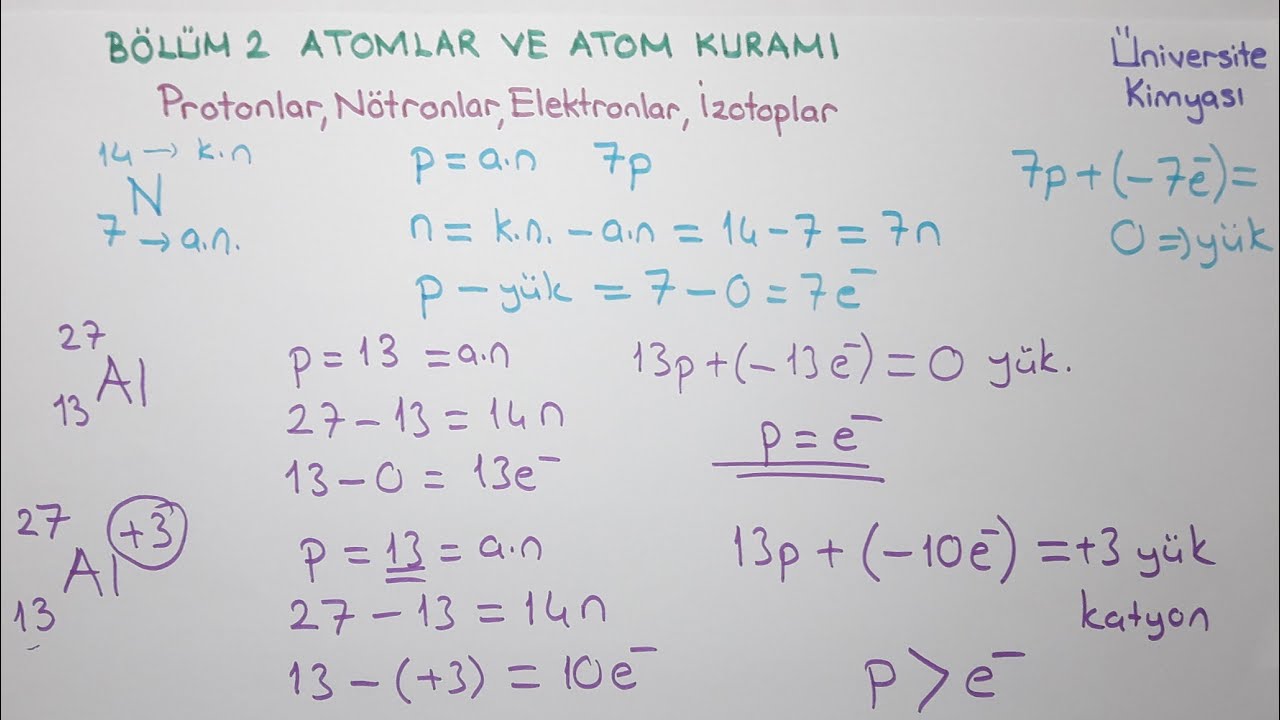 BÖLÜM 2 ATOMLAR VE ATOM KURAMI
Üniversite
Kimyası
Protonlar, Nötronlar, Elektronlar, İzotoplar
14 → k.n
N
7 → a.n.
p = a.n 7p
n = k.n. - a.n = 14 - 7 = 7n
p - yük = 7 - 0 = 7e⁻
7p + (-7e⁻) =
0 ⇒ yük
27
Al
13
p = 13 = a.n
27 - 13 = 14n
13 - 0 = 13e⁻
13p + (-13e⁻) = 0 yük.
p = e⁻
27
Al +3
13
p = 13 = a.n
27 - 13 = 14n
13 - (+3) = 10e⁻
13p + (-10e⁻) = +3 yük
katyon
p > e⁻